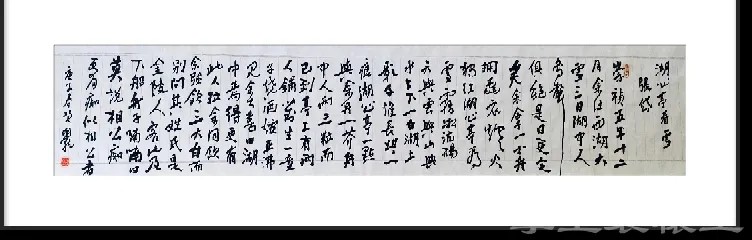 湖心亭看雪
張岱
崇禎五年十二
月余住西湖大
雪三日湖中人
鳥聲
俱絕是日更定
矣余拏一小舟
擁毳衣爐火
獨往湖心亭看
雪霧淞沆碭
天與雲與山與
水上下一白湖上
影子惟長堤一
痕湖心亭一點
與余舟一芥舟
中人兩三粒而
已到亭上有兩
人鋪氈坐一童
子燒酒爐正沸
見余大喜曰湖
中焉得更有
此人拉余同飲
余強飲三大白而
別問其姓氏是
金陵人客此及
下船舟子喃喃曰
莫說相公痴
更有痴似相公者